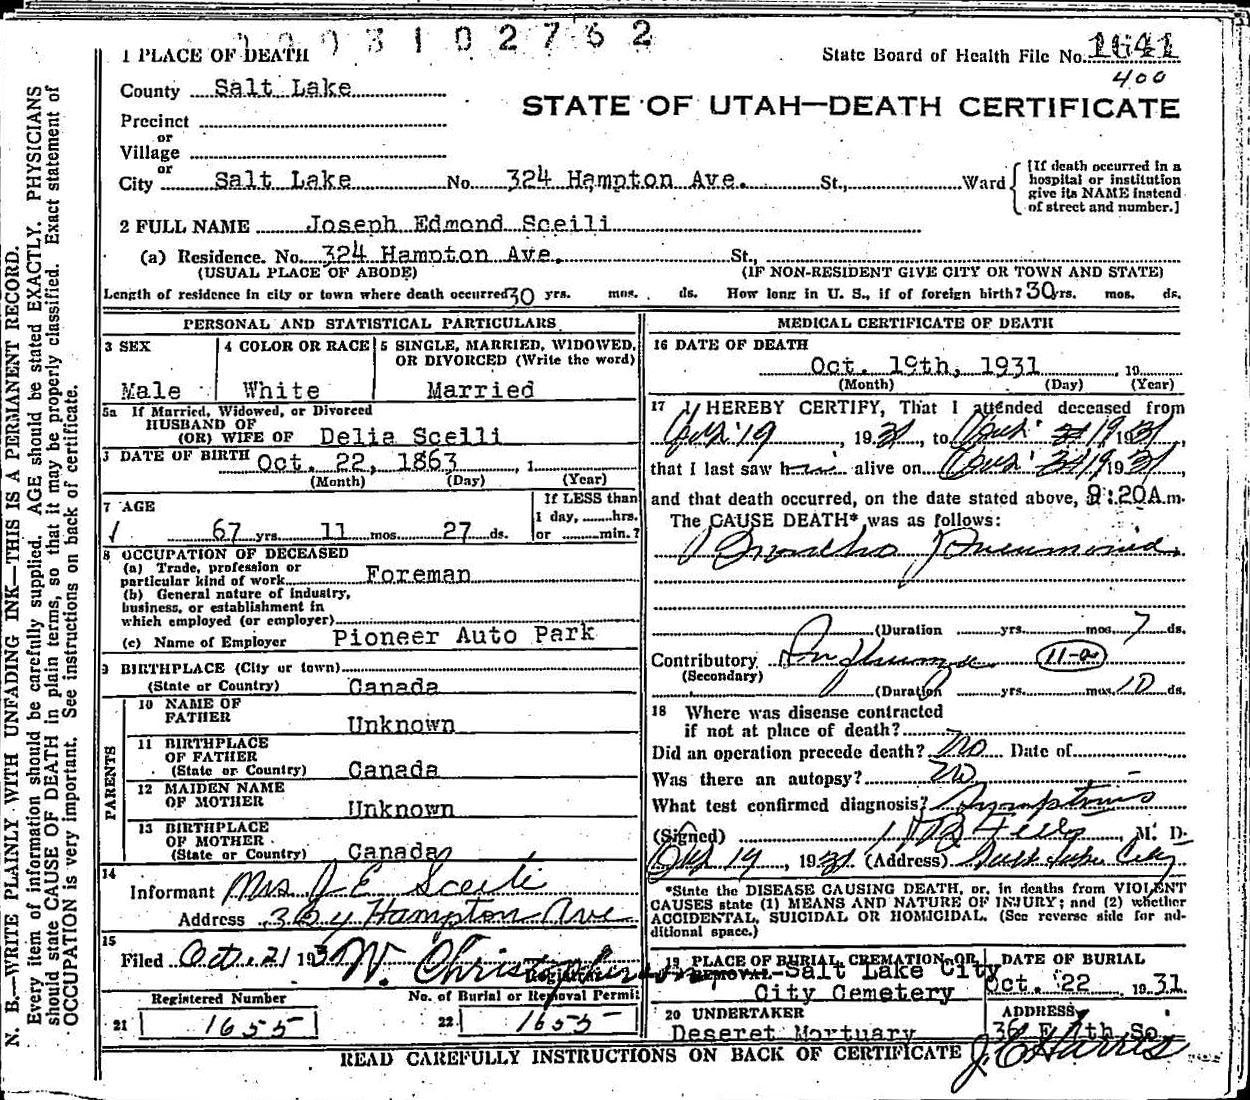 0003102762
1 PLACE OF DEATH
State Board of Health File No. 1641
400
County Salt Lake
STATE OF UTAH—DEATH CERTIFICATE
Precinct
or
Village
or
City Salt Lake No. 324 Hampton Ave. St., Ward
[If death occurred in a
hospital or institution
give its NAME instead
of street and number.]
2 FULL NAME Joseph Edmond Sceili
(a) Residence. No. 324 Hampton Ave. St.,
(USUAL PLACE OF ABODE) (IF NON-RESIDENT GIVE CITY OR TOWN AND STATE)
Length of residence in city or town where death occurred 30 yrs. mos. ds. How long in U. S., if of foreign birth? 30 yrs. mos. ds.
PERSONAL AND STATISTICAL PARTICULARS
3 SEX 4 COLOR OR RACE 5 SINGLE, MARRIED, WIDOWED,
OR DIVORCED (Write the word)
Male White Married
5a If Married, Widowed, or Divorced
HUSBAND OF
(OR) WIFE OF Delia Sceili
DATE OF BIRTH Oct. 22, 1863, 1
(Month) (Day) (Year)
7 AGE
67 yrs. 11 mos. 27 ds.
If LESS than
1 day, ......hrs.
or ......min.?
8 OCCUPATION OF DECEASED
(a) Trade, profession or
particular kind of work Foreman
(b) General nature of industry,
business, or establishment in
which employed (or employer)
(c) Name of Employer Pioneer Auto Park
9 BIRTHPLACE (City or town)
(State or Country) Canada
PARENTS
10 NAME OF
FATHER Unknown
11 BIRTHPLACE
OF FATHER
(State or Country) Canada
12 MAIDEN NAME
OF MOTHER Unknown
13 BIRTHPLACE
OF MOTHER
(State or Country) Canada
14
Informant Mrs J E Sceili
Address 324 Hampton Ave
15
Filed Oct. 21 193 W. Christopherson
Registered Number No. of Burial or Removal Permit
21 1655 22 1655
MEDICAL CERTIFICATE OF DEATH
16 DATE OF DEATH
Oct. 19th, 1931 19
(Month) (Day) (Year)
17 I HEREBY CERTIFY, That I attended deceased from
19, 1931 to 19 1931,
that I last saw him alive on 19 1931,
and that death occurred, on the date stated above, 9:20A.m.
The CAUSE DEATH* was as follows:
Broncho Pneumonia
(Duration yrs. mos. 7 ds.
Contributory Influenza 11-a
(Secondary)
(Duration yrs. mos. 10 ds.
18 Where was disease contracted
if not at place of death?
Did an operation precede death? No Date of
Was there an autopsy? No
What test confirmed diagnosis? Symptoms
(Signed) M. D.
Oct 19, 1931 (Address) Salt Lake City
*State the DISEASE CAUSING DEATH, or, in deaths from VIOLENT
CAUSES state (1) MEANS AND NATURE OF INJURY; and (2) whether
ACCIDENTAL, SUICIDAL OR HOMICIDAL. (See reverse side for ad-
ditional space.)
19 PLACE OF BURIAL, CREMATION, OR
REMOVAL Salt Lake City
City Cemetery
DATE OF BURIAL
Oct. 22 1931
20 UNDERTAKER
Deseret Mortuary
ADDRESS
36 E 7th So.
J. E. Harris
READ CAREFULLY INSTRUCTIONS ON BACK OF CERTIFICATE
N. B.—WRITE PLAINLY WITH UNFADING INK—THIS IS A PERMANENT RECORD.
Every item of information should be carefully supplied. AGE should be stated EXACTLY. PHYSICIANS
should state CAUSE OF DEATH in plain terms, so that it may be properly classified. Exact statement of
OCCUPATION is very important. See instructions on back of certificate.